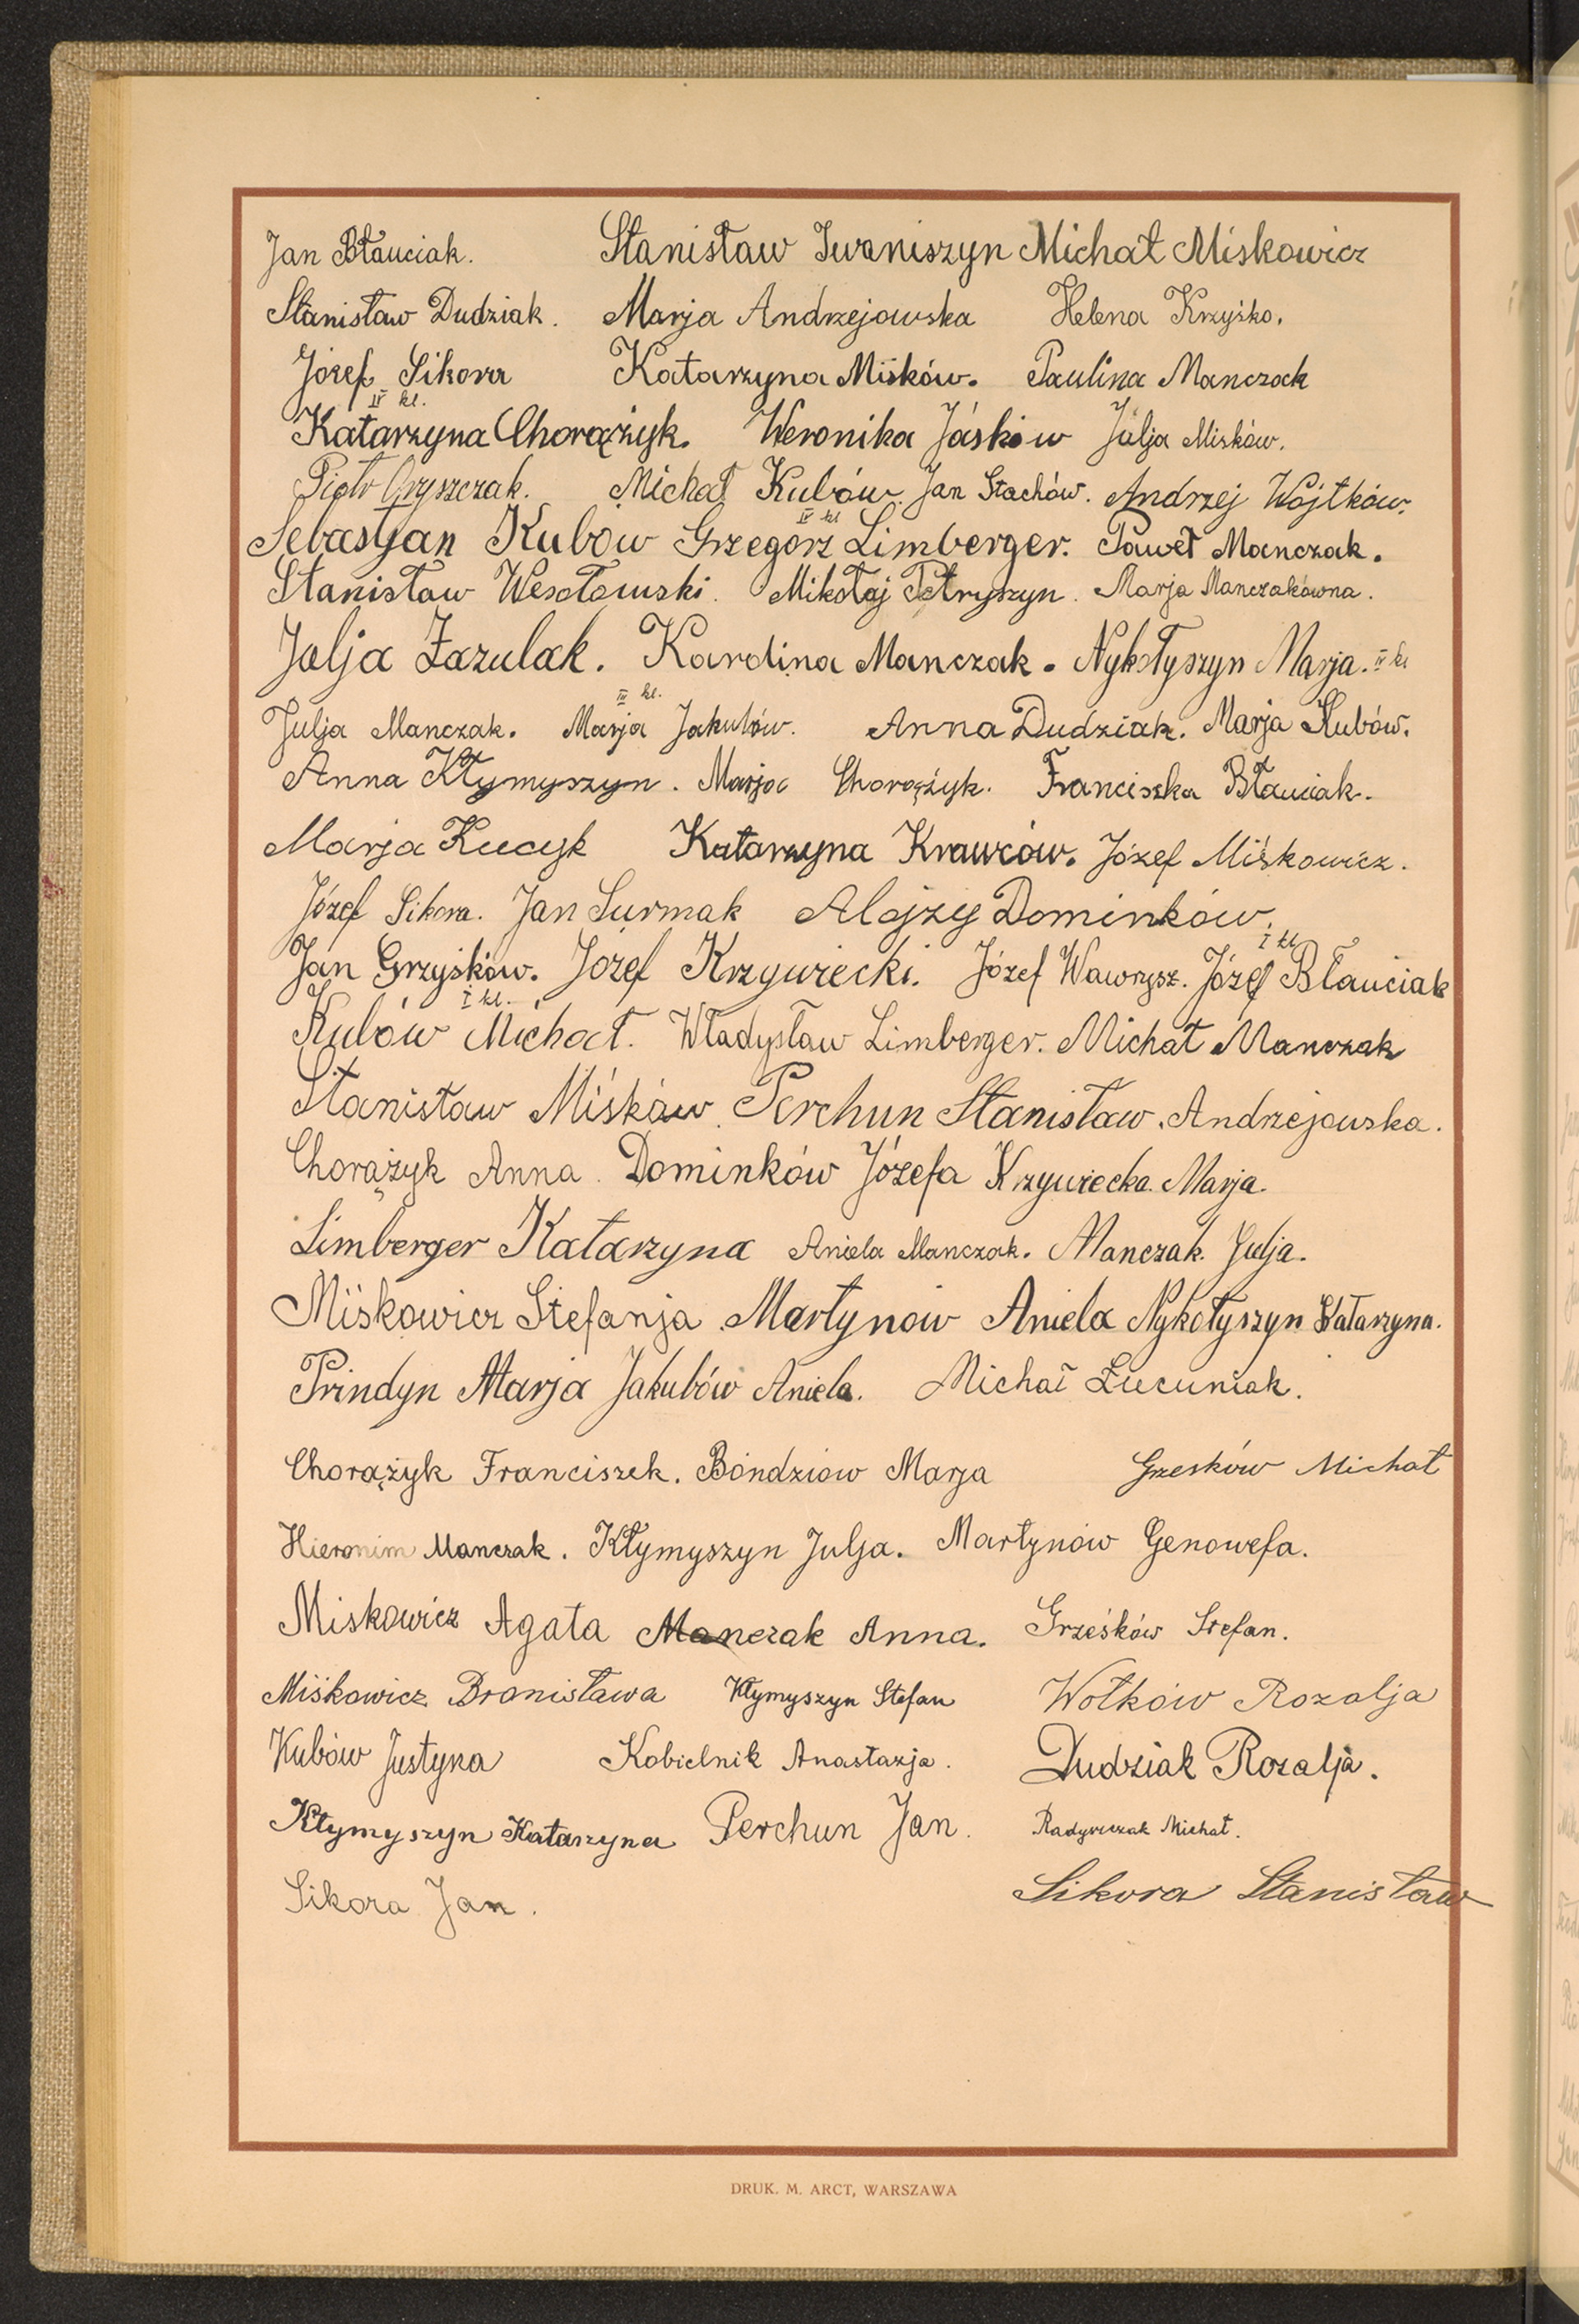 Jan Bławciak. Stanisław Iwaniszyn Michał Miśkowicz
Stanisław Dudziak. Marja Andrzejowska Helena Krzyśko.
Józef Sikora Katarzyna Miśków. Paulina Manczak
IV kl.
Katarzyna Chorążyk. Weronika Jáśków Julja Miśków.
Piotr Gryszczak. Michał Kubów. Jan Stachów. Andrzej Wójtków.
IV kl
Sebastjan Kubów Grzegorz Limberger. Paweł Manczak.
Stanisław Wesołowski. Mikołaj Petryszyn. Marja Manczakówna.
Julja Zazulak. Karolina Manczak. Nykołyszyn Marja. IV kl
III kl.
Julja Manczak. Marja Jakubów. Anna Dudziak. Marja Kubów.
Anna Kłymyszyn. Marja Chorążyk. Franciszka Bławciak.
Marja Kucyk Katarzyna Krawców. Józef Miśkowicz.
Józef Sikora. Jan Surmak Alojzy Dominków.
I kl
Jan Grzyśków. Józef Krzywiecki. Józef Wawrysz. Józef Bławciak
I kl.
Kubów Michał. Władysław Limberger. Michał Manczak
Stanisław Miśków. Perchun Stanisław. Andrzejowska.
Chorążyk Anna. Dominków Józefa Krzywiecka Marja.
Limberger Katarzyna Aniela Manczak. Manczak Julja.
Miśkowicz Stefanja. Martynów Aniela Nykołyszyn Katarzyna.
Prindyn Marja Jakubów Aniela. Michał Łucuniak.
Chorążyk Franciszek. Bondziów Marja Grzesków Michał
Hieronim Manczak. Kłymyszyn Julja. Martynów Genowefa.
Miskowicz Agata Manczak Anna. Grześków Stefan.
Miśkowicz Bronisława Kłymyszyn Stefan Wołków Rozalja
Kubów Justyna Kobielnik Anastazja. Dudziak Rozalja.
Kłymyszyn Katarzyna Perchun Jan. Michał.
Sikora Jan. Sikora Stanisław
DRUK. M. ARCT, WARSZAWA